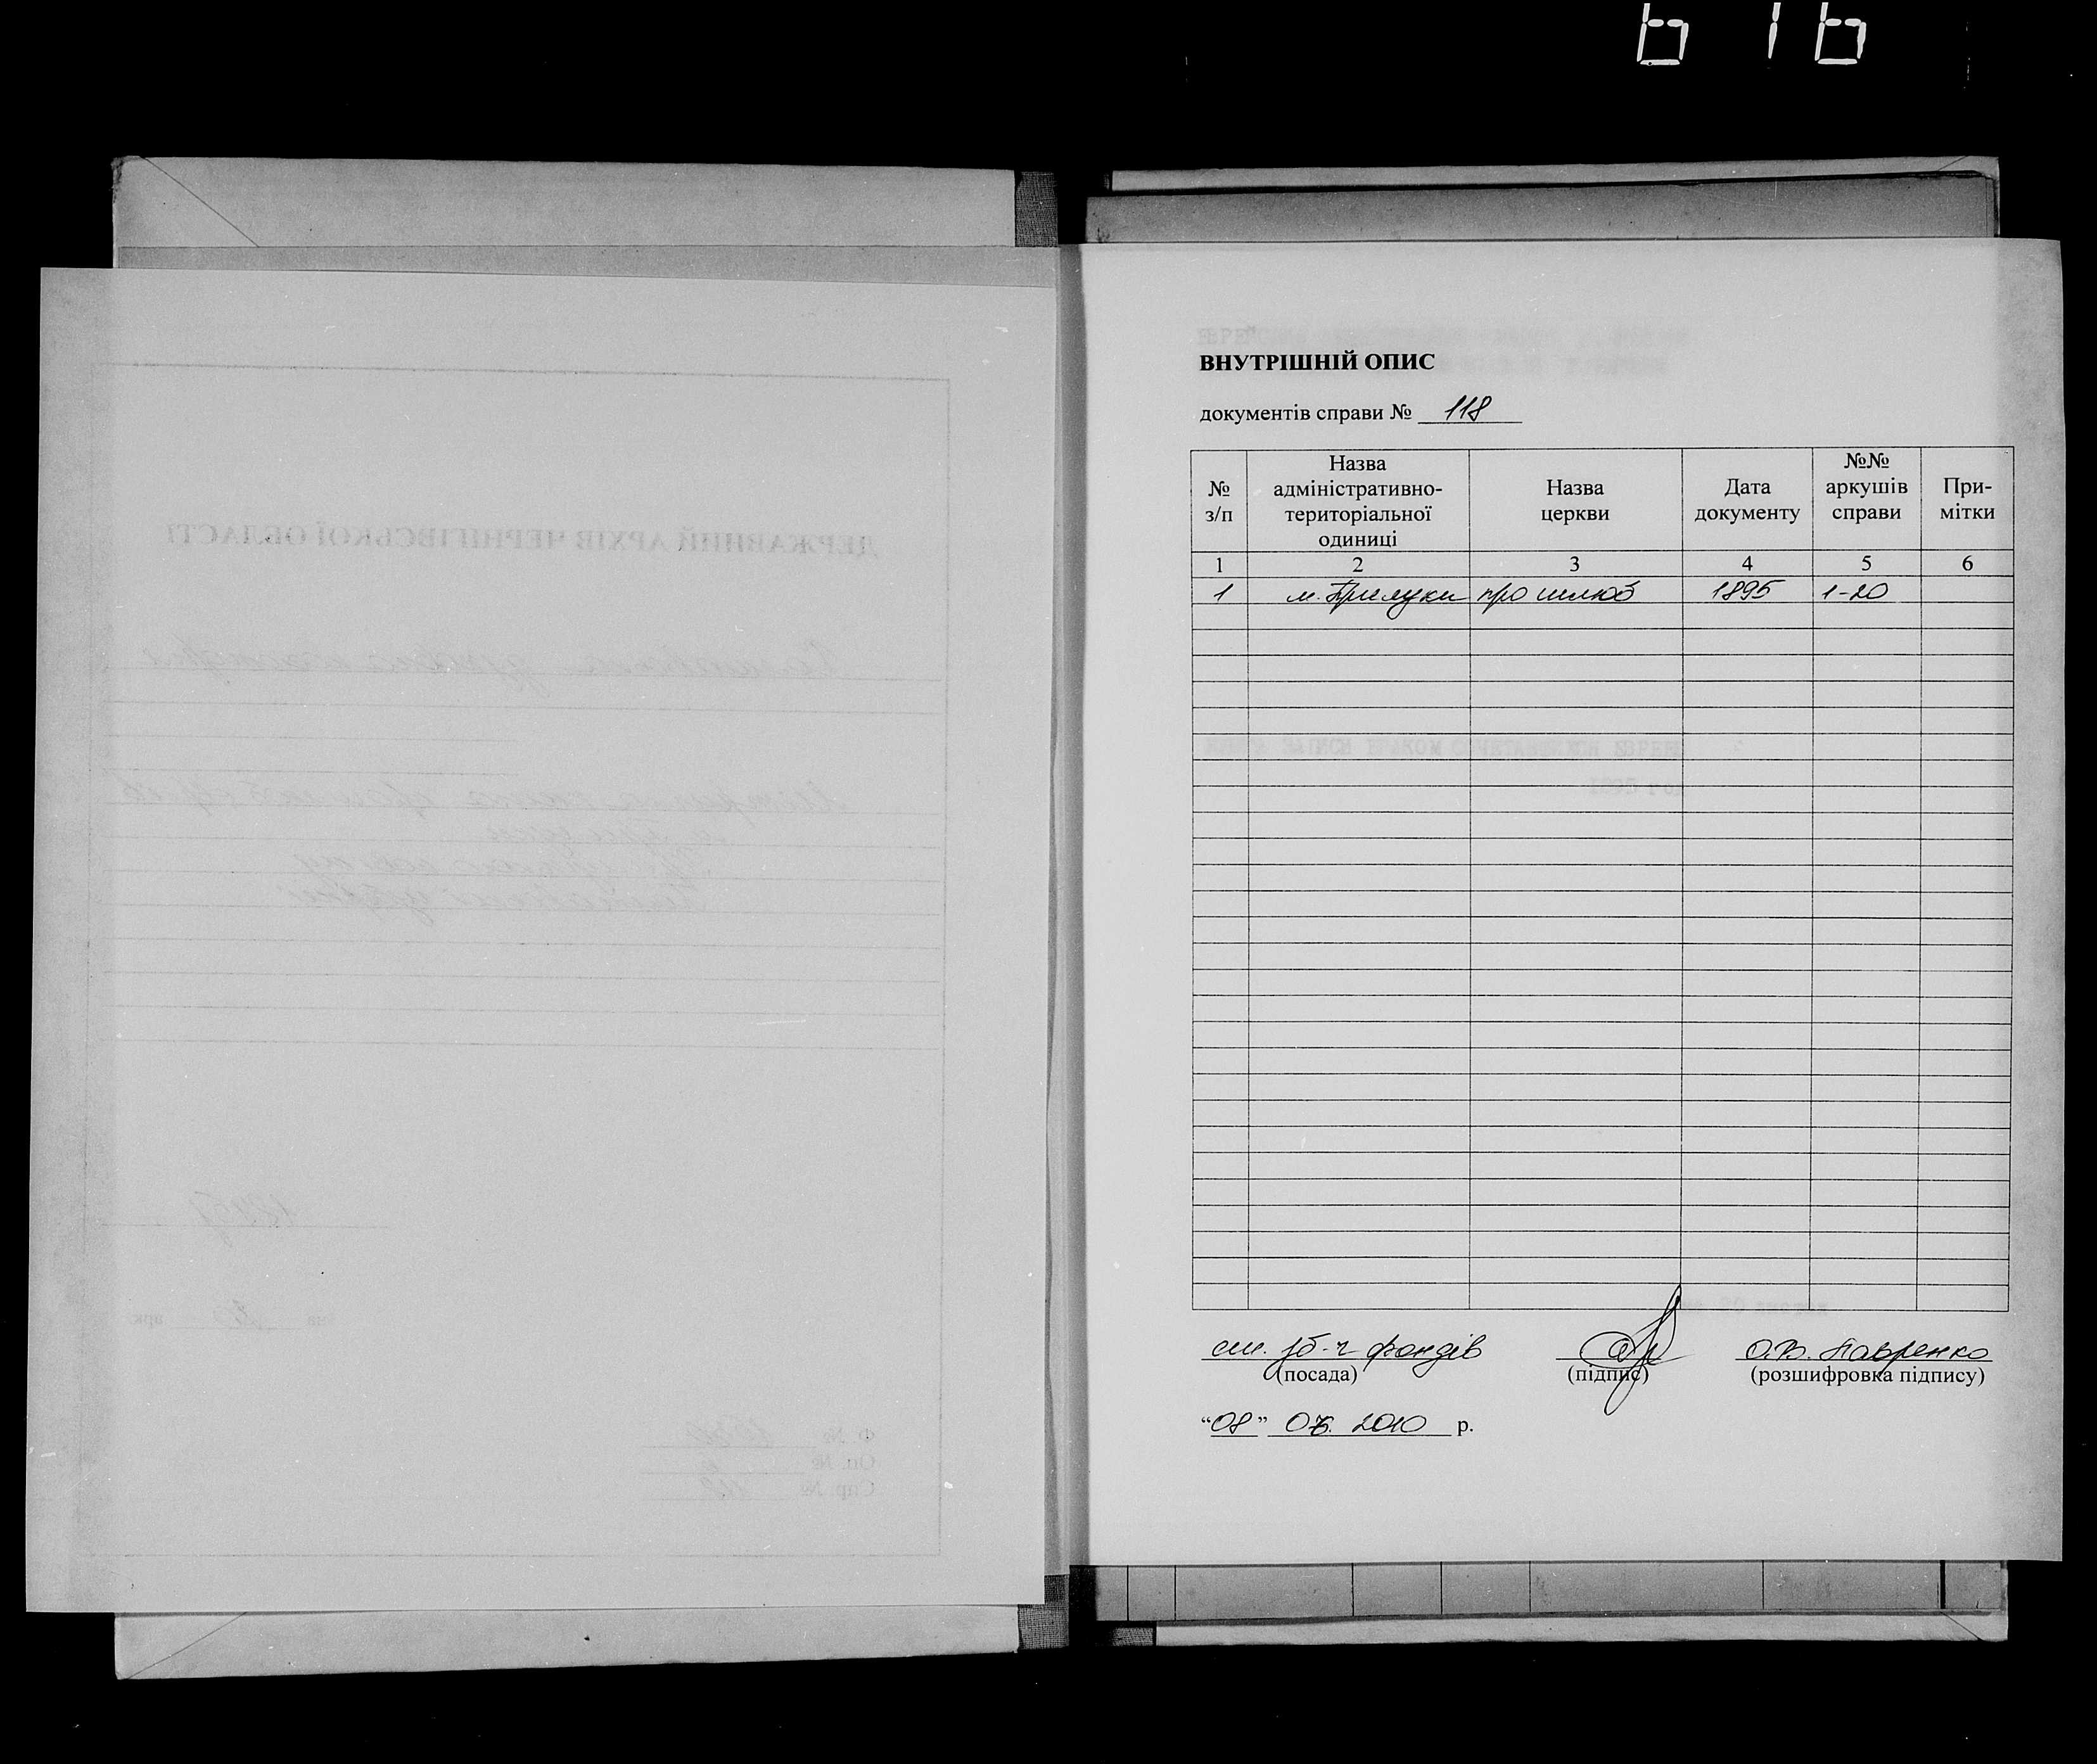 616
ВНУТРІШНІЙ ОПИС
документів справи № 118
№ з/п
Назва адміністративно-територіальної одиниці
Назва церкви
Дата документу
№№ аркушів справи
При-мітки
1 2 3 4 5 6
1 м. Прилуки про шлюб 1895 1-20
зб-ч фондів О.В. Лавренко
(посада) (підпис) (розшифровка підпису)
“08” 2010 р.
ДЕРЖАВНИЙ АРХІВ ЧЕРНІГІВСЬКОЇ ОБЛАСТІ
Ф. №
Оп. №
Спр. № 118
1895 год